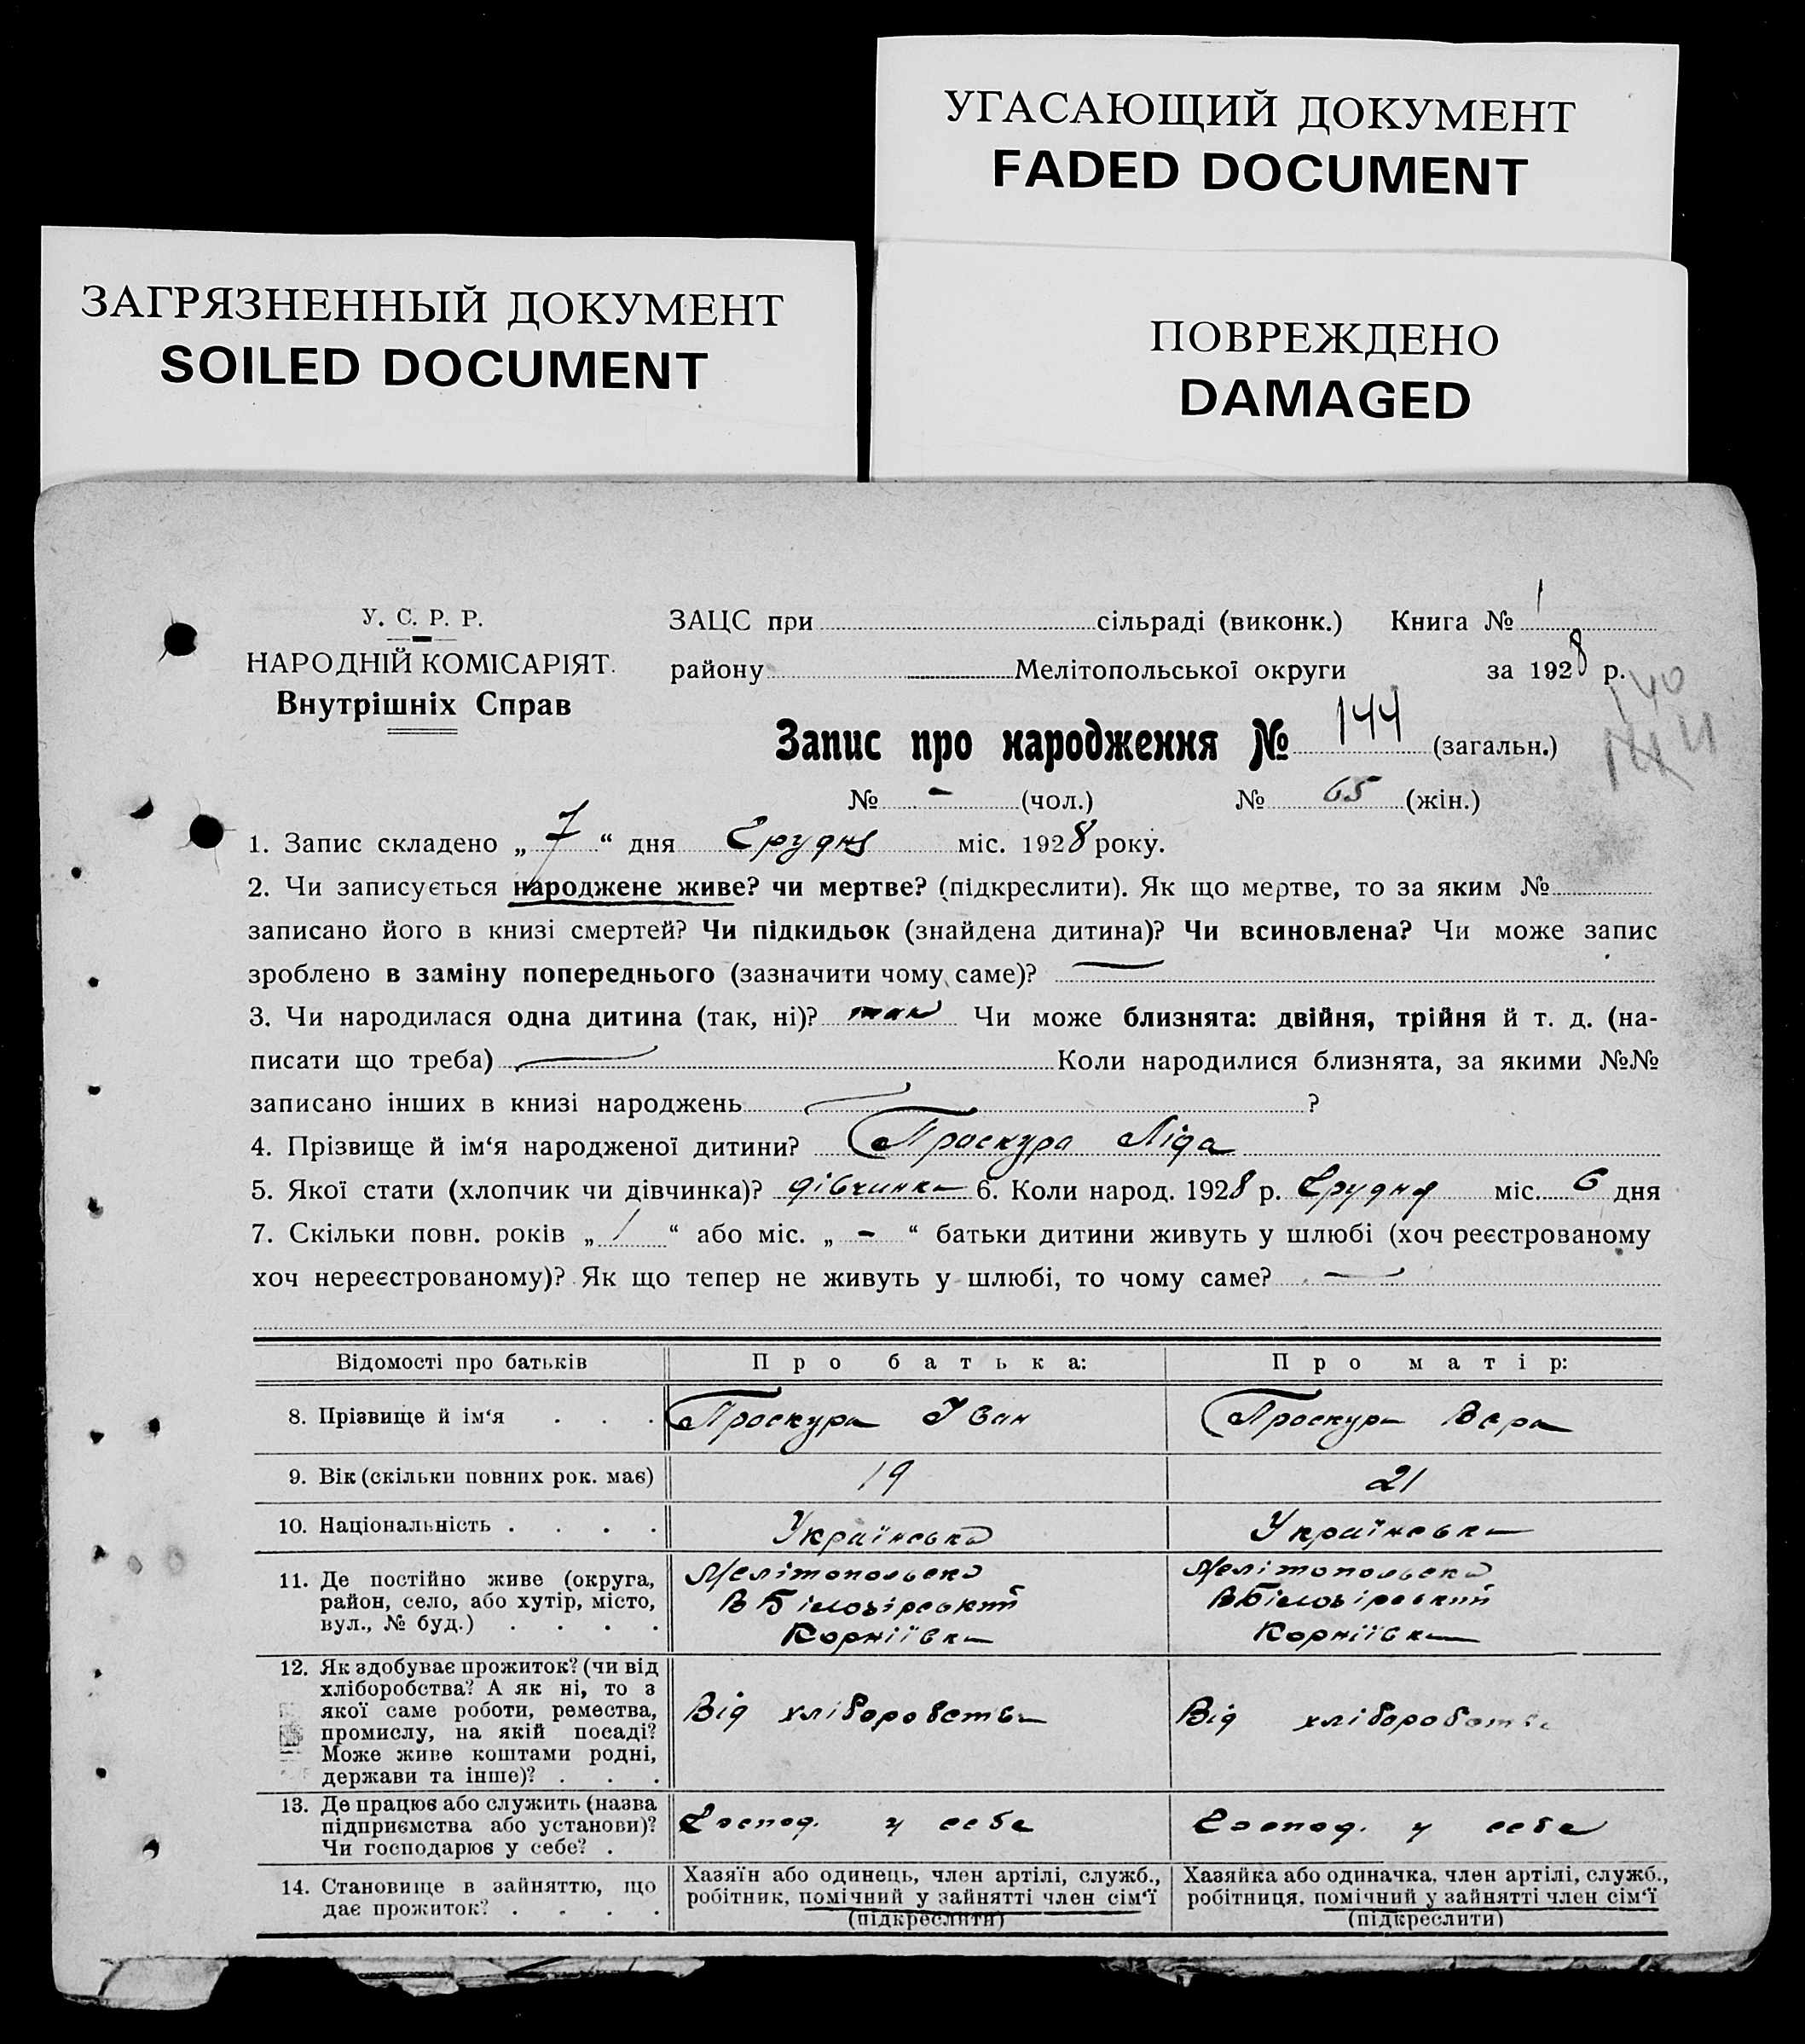 УГАСАЮЩИЙ ДОКУМЕНТ
FADED DOCUMENT
ЗАГРЯЗНЕННЫЙ ДОКУМЕНТ
SOILED DOCUMENT
ПОВРЕЖДЕНО
DAMAGED
У. С. Р. Р.
НАРОДНІЙ КОМІСАРІЯТ.
Внутрішніх Справ
ЗАЦС при сільраді (виконк.) Книга № 1
району Мелітопольської округи за 1928 р.
140
Запис про народження № 144 (загальн.)
№ - (чол.) № 65 (жін.)
1. Запис складено „ 7 “ дня Грудня міс. 1928 року.
2. Чи записується народжене живе? чи мертве? (підкреслити). Як що мертве, то за яким №
записано його в книзі смертей? Чи підкидьок (знайдена дитина)? Чи всиновлена? Чи може запис
зроблено в заміну попереднього (зазначити чому саме)? —
3. Чи народилася одна дитина (так, ні)? так Чи може близнята: двійня, трійня й т. д. (на-
писати що треба) — Коли народилися близнята, за якими №№
записано інших в книзі народжень — ?
4. Прізвище й ім‘я народженої дитини? Проскура Ліда
5. Якої стати (хлопчик чи дівчинка)? дівчинка 6. Коли народ. 1928 р. Грудня міс. 6 дня
7. Скільки повн. років „ 1 “ або міс. „ - “ батьки дитини живуть у шлюбі (хоч реєстрованому
хоч нереєстрованому)? Як що тепер не живуть у шлюбі, то чому саме? —
Відомості про батьків Про батька: Про матір:
8. Прізвище й ім‘я . . . Проскура Іван Проскура Вера
9. Вік (скільки повних рок. має) 19 21
10. Національність . . . . Українська Українська
11. Де постійно живе (округа,
район, село, або хутір, місто,
вул., № буд.) . . . .
Мелітопольська
ВБілозірський
Корніївка
Мелітопольська
ВБілозірський
Корніївка
12. Як здобуває прожиток? (чи від
хліборобства? А як ні, то з
якої саме роботи, ремества,
промислу, на якій посаді?
Може живе коштами родні,
держави та інше)? . . .
Від хліборобства
Від хліборобства
13. Де працює або служить (назва
підприємства або установи)?
Чи господарює у себе? .
Господ. у себе
Господ. у себе
14. Становище в зайняттю, що
дає прожиток? . . . .
Хазяїн або одинець, член артілі, служб.,
робітник, помічний у зайнятті член сім‘ї
(підкреслити)
Хазяйка або одиначка, член артілі, служб.,
робітниця, помічний у зайнятті член сім‘ї
(підкреслити)